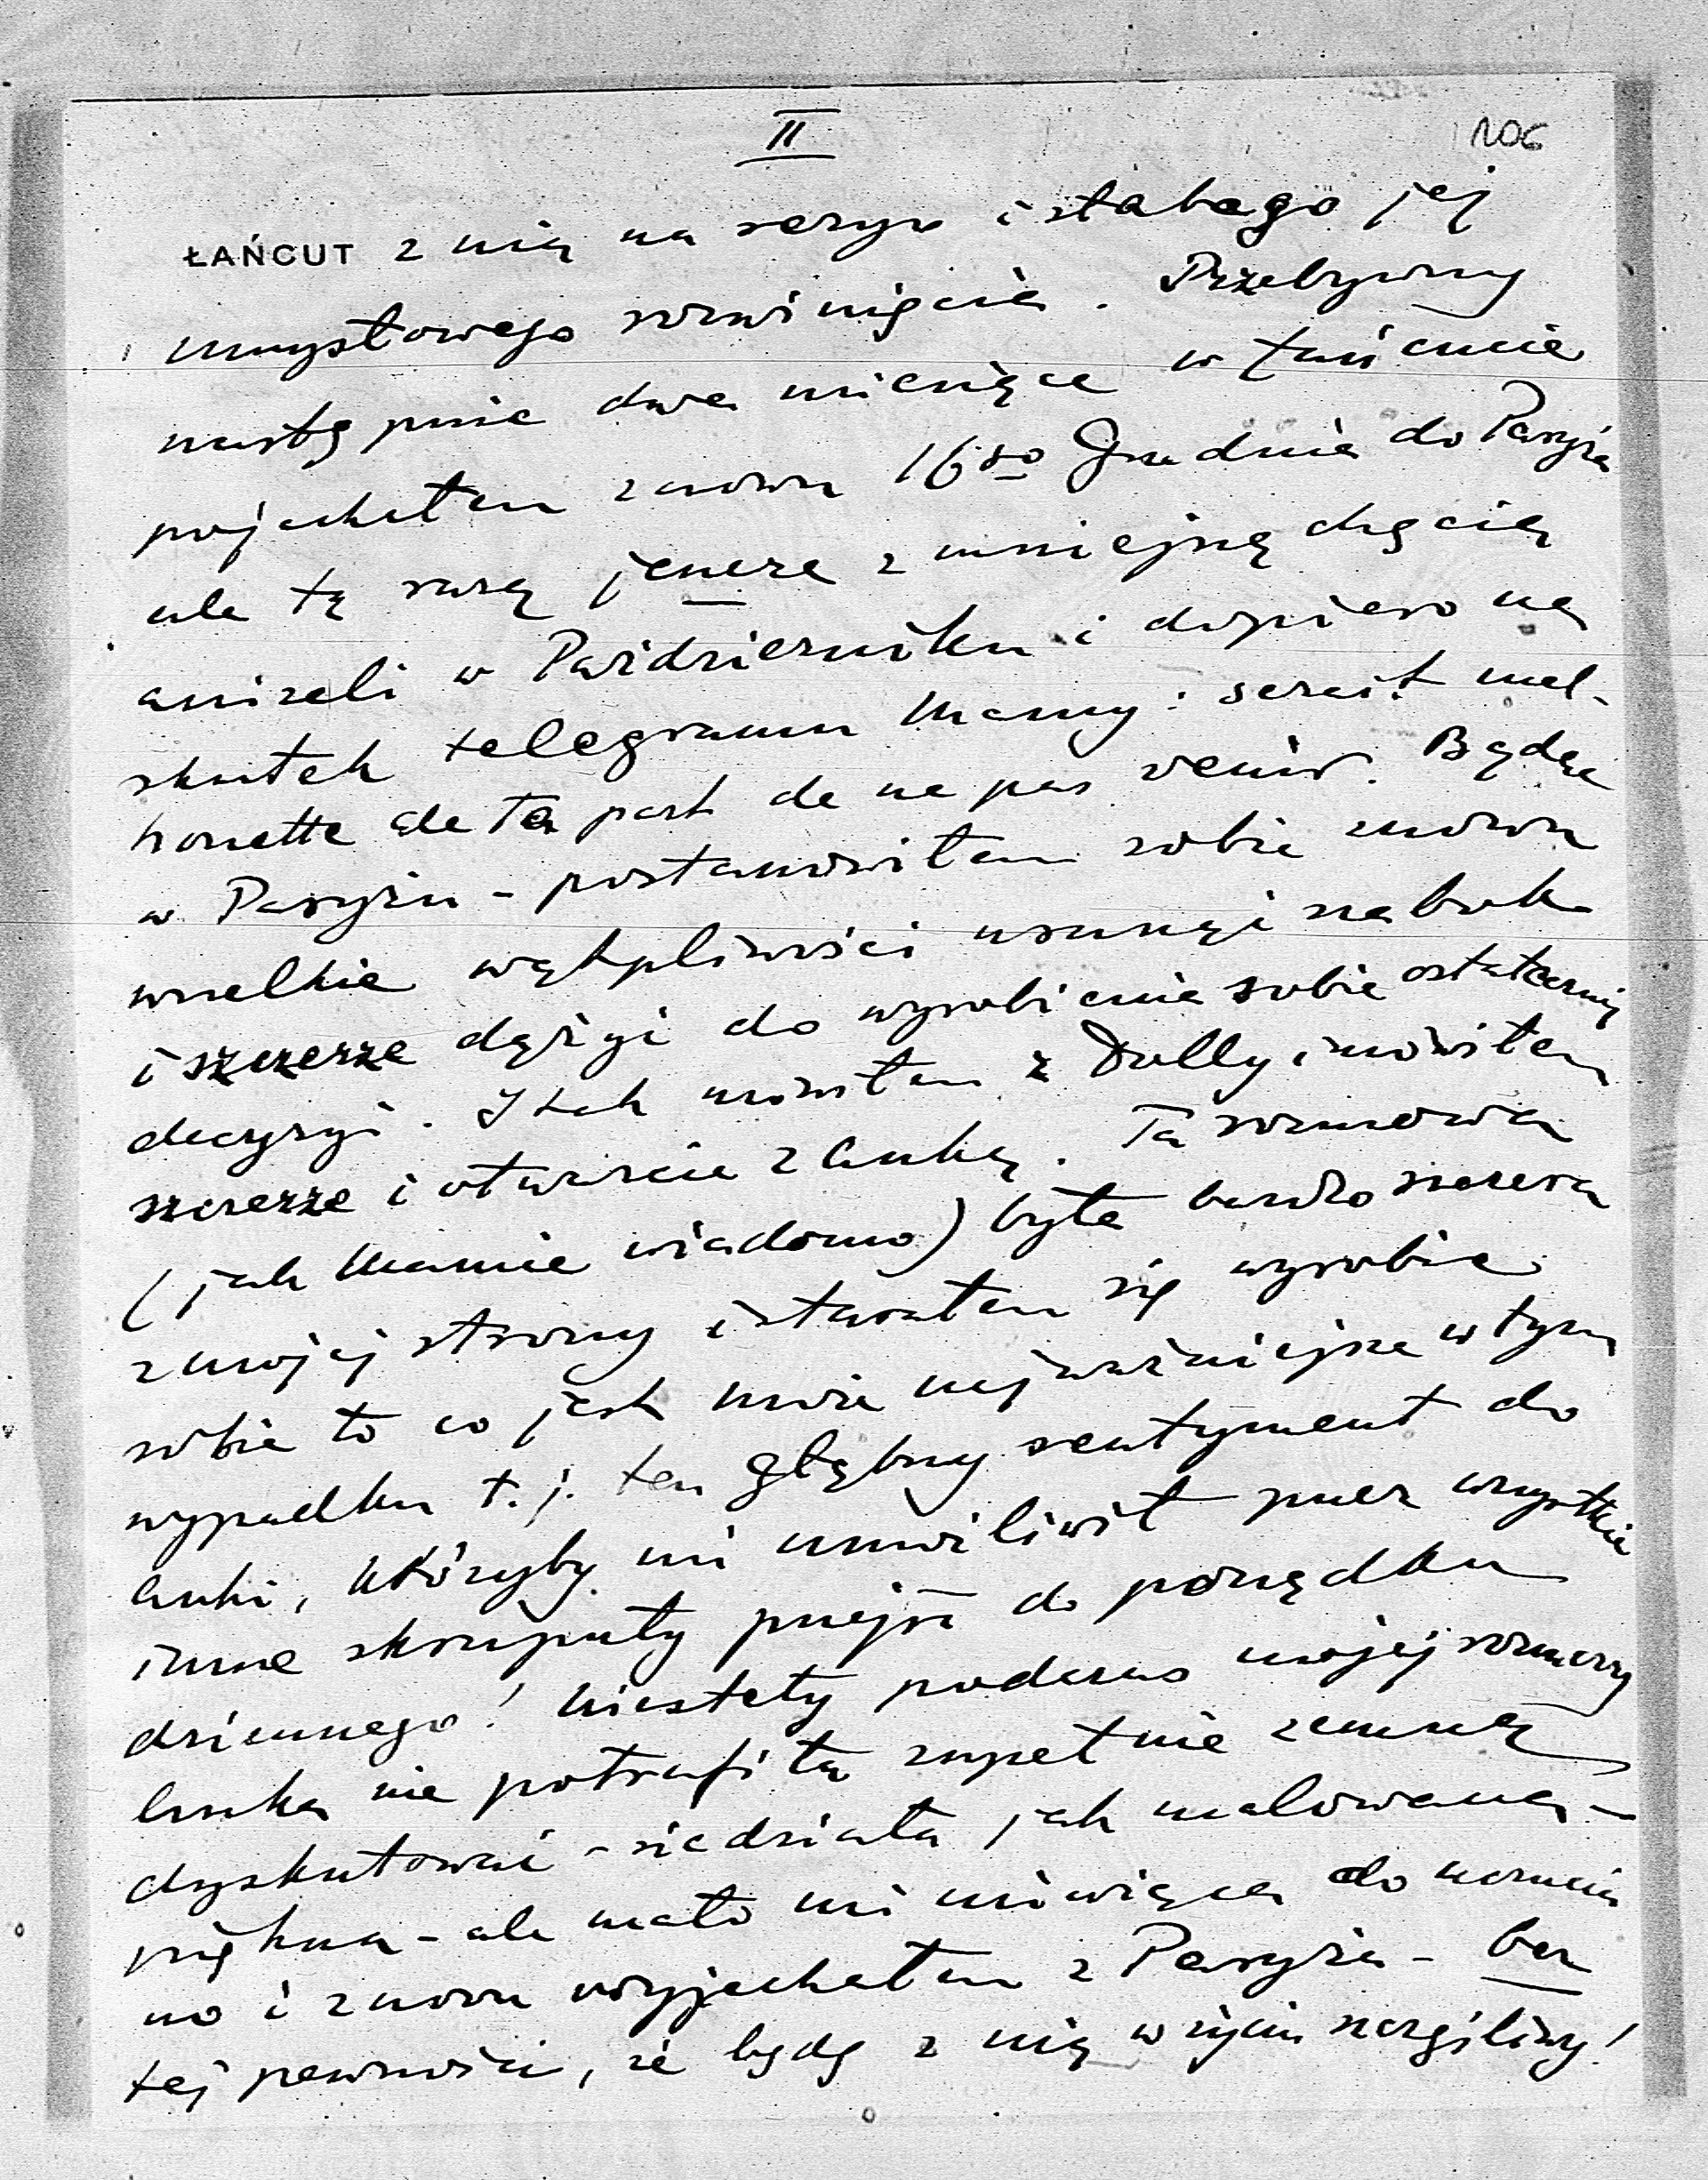 II
106
ŁAŃCUT z nią na seryo i słabego jej
umysłowego rozwinięcia. Przebywszy
następnie dwa miesiące w Łańcucie
pojechałem znowu 16go Grudnia do Paryża
ale tą razą jeszcze z mniejszą chęcią
aniżeli w Październiku i dopiero na
skutek telegramu Mamy: serait mal-
honette de ta part de ne pas venir. Będąc
w Paryżu - postanowiłem sobie znowu
wszelkie wątpliwości usunąć na bok
i szczerze dążyć do wyrobienia sobie ostatecznej
decyzyi. I tak mówiłem z Dolly i mówiłem
szczerze i otwarcie z Anką. Ta rozmowa
(jak Mamie wiadomo) była bardzo szczera
z mojej strony i starałem się wyrobić
sobie to co jest może najważniejsze w tym
wypadku t.j. ten głębszy sentyment do
Anki, któryby mi umożliwił przez wszystkie
inne skrupuły przejść do porządku
dziennego! Niestety podczas mojej rozmowy
Anka nie potrafiła zupełnie zemną
dyskutować - siedziała jak malowana -
piękna - ale mało mi mówiąca do
no i znowu wyjechałem z Paryża - bez
tej pewności, że będę z nią w życiu szczęśliwy!